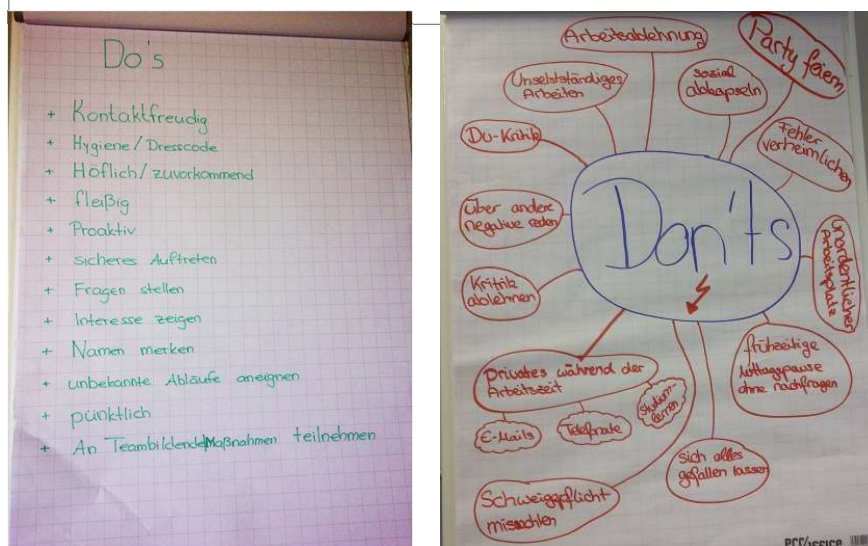 Do's
+ Kontaktfreudig
+ Hygiene/Dresscode
+ Höflich/zuvorkommend
+ fleißig
+ Proaktiv
+ sicheres Auftreten
+ Fragen stellen
+ Interesse zeigen
+ Namen merken
+ unbekannte Abläufe aneignen
+ pünktlich
+ An Teambildende Maßnahmen teilnehmen
Don'ts
Arbeitsablehnung
Party feiern
sozial
abkapseln
Unselbstständiges
Arbeiten
Du-Kritik
Fehler
verheimlichen
über andere
negative reden
unordentlicher
Arbeitsplatz
Kritik
ablehnen
frühzeitige
Mittagspause
ohne nachfragen
Privates während der
Arbeitszeit
E-Mails
Telefonate
Studium-
lernen
sich alles
gefallen lassen
Schweigepflicht